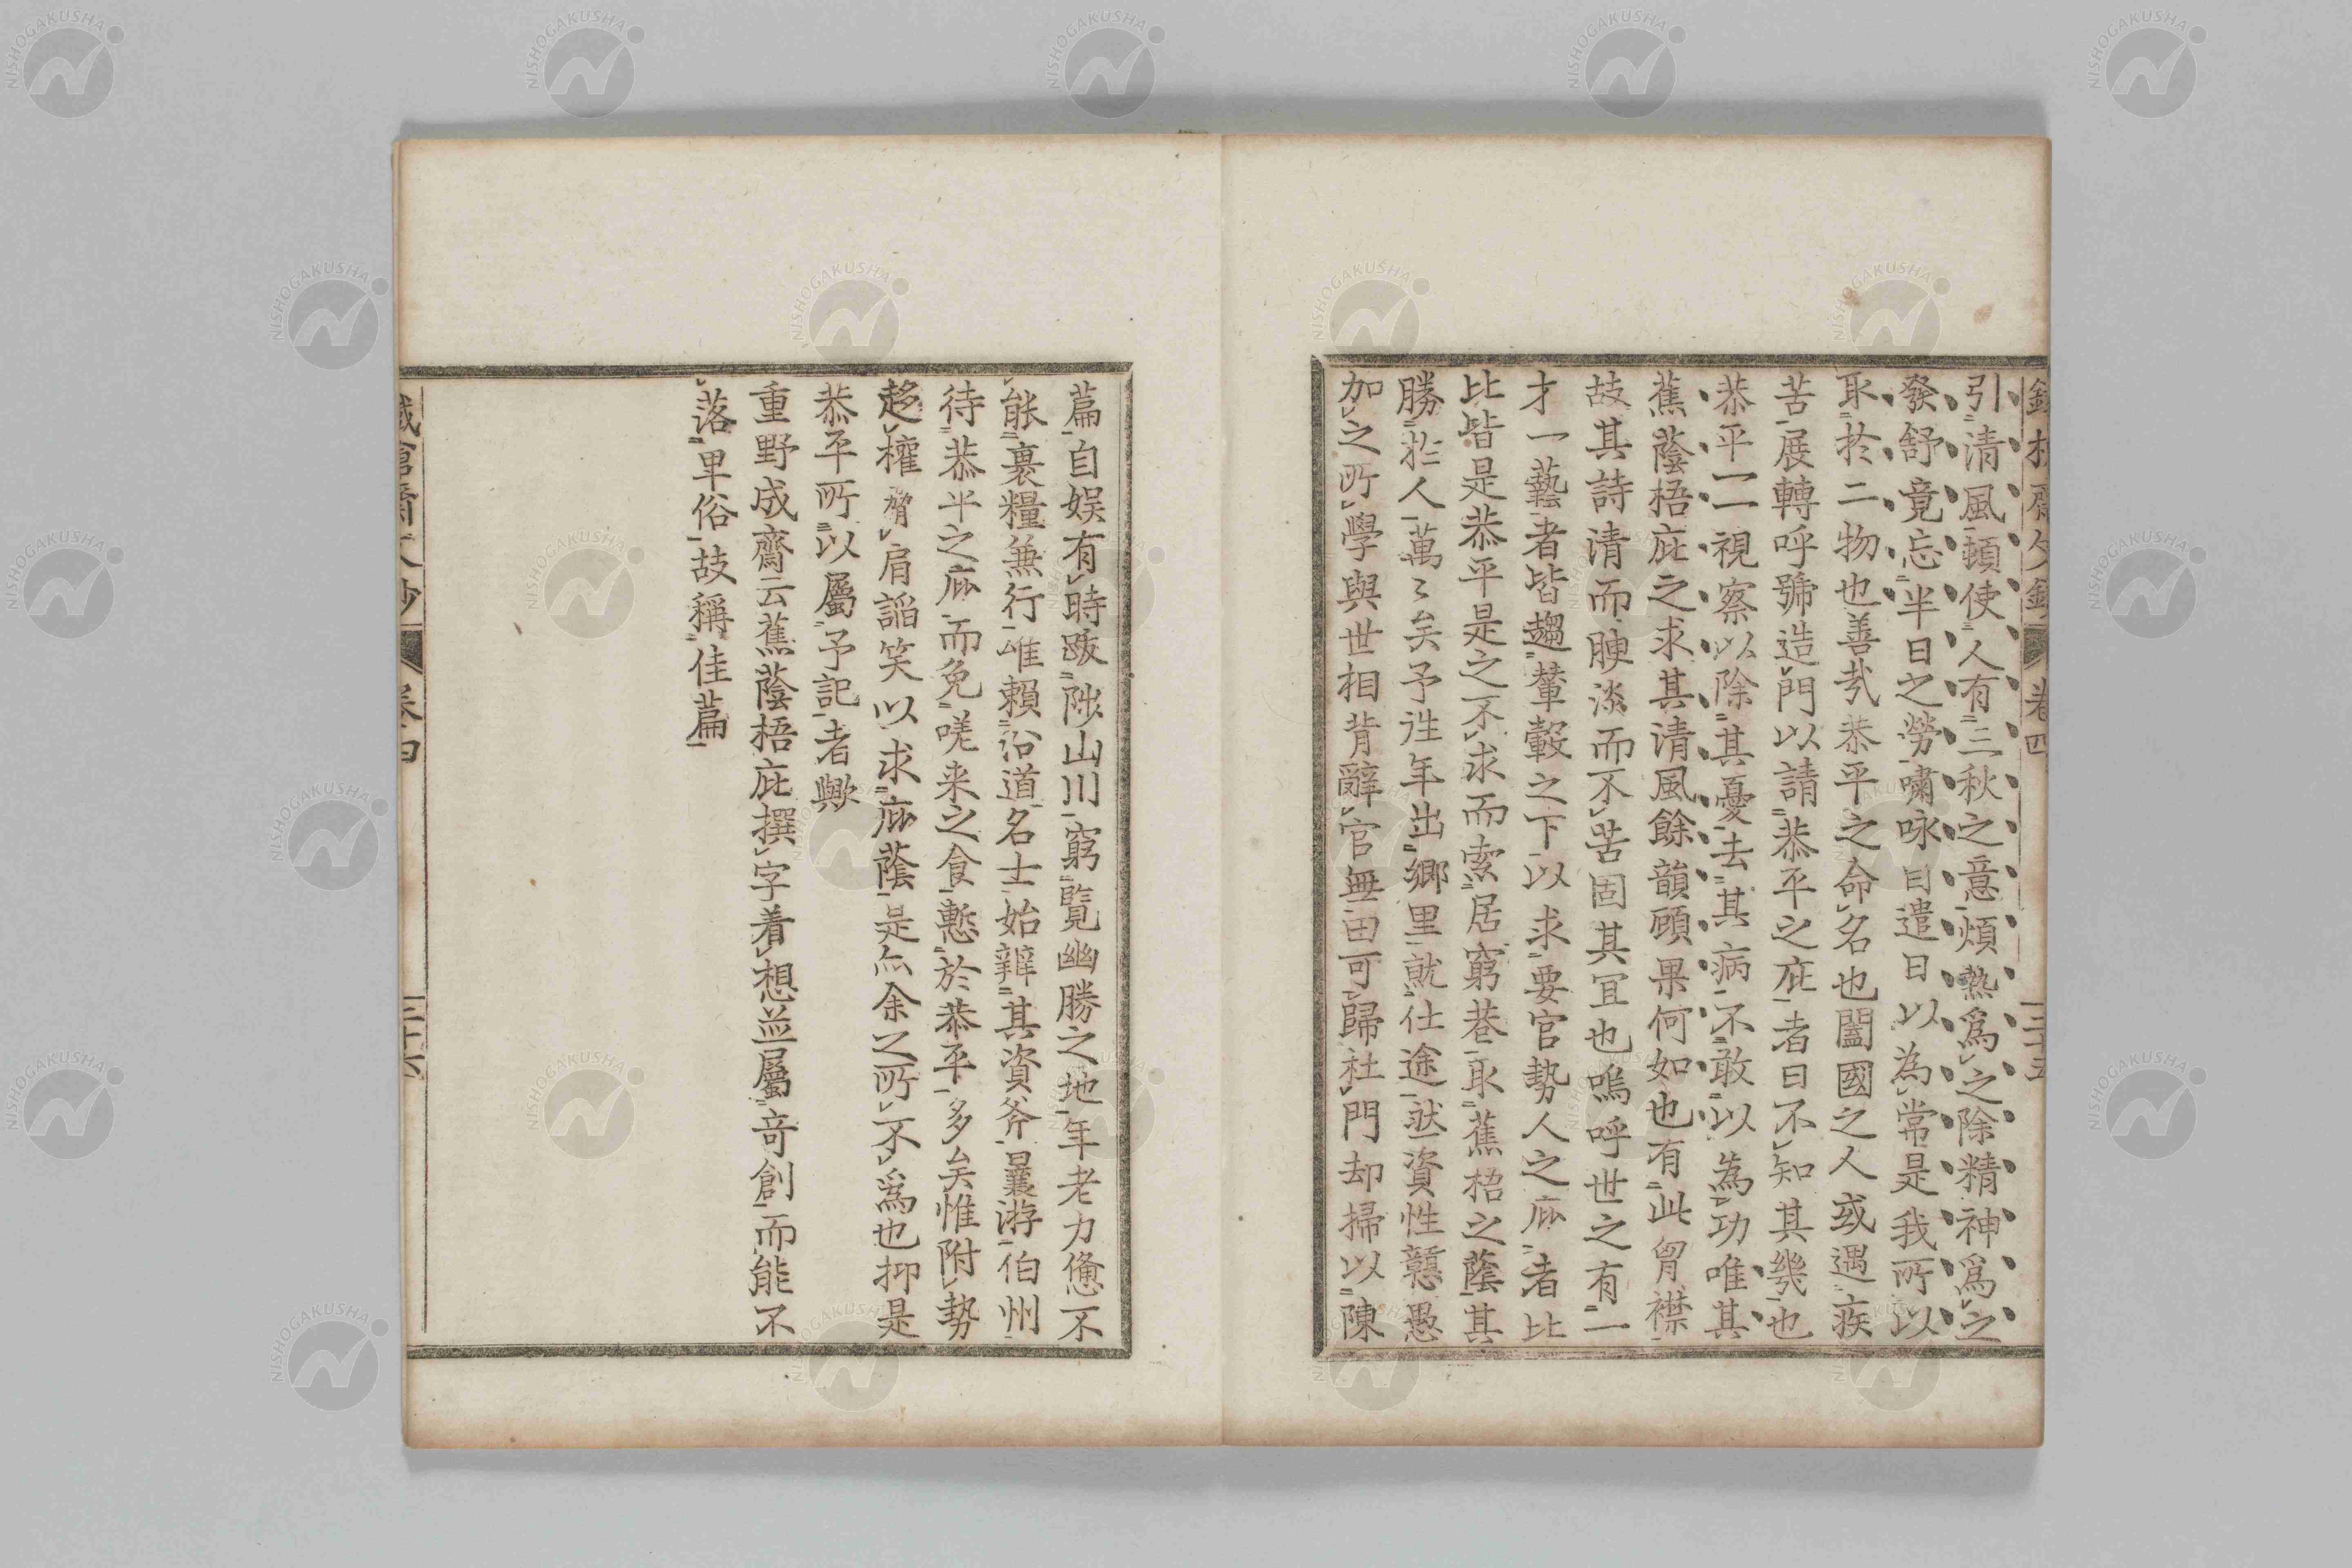 引清風頓使人有三秋之意煩熱爲之除精神爲之
發舒竟忘半日之勞嘯咏日遣日以為常是我所以
取於二物也善哉恭平之命名也闔國之人或遇疾
苦展轉呼號造門以請恭平之庇者日不知其幾也
恭平一一視察以除其憂去其病不敢以為功唯其
蕉蔭梧庇之求其清風餘韻顧果何如也有此胷襟
故其詩清而腴淡而不苦固其冝也嗚呼世之有一
才一藝者皆趨輦轂之下以求要官勢人之庇者比
比皆是恭平是之不求而索居窮巷取蕉梧之蔭其
勝於人萬〻矣予往年出鄉里就仕途然資性戇愚
加之所學與世相背辭官無田可歸杜門却掃以陳
篇自娯有時跋陟山川窮覽幽勝之地年老力憊不
能裹糧兼行唯賴沿道名士始辨其資斧曩游伯州
待恭平之庇而免嗟来之食慙於恭平多矣惟附勢
趍權脅肩謟笑以求庇蔭是亦余之所不爲也抑是
恭平所以屬予記者歟
重野成齋云蕉蔭梧庇撰字着想並屬奇創而能不
落卑俗故稱佳篇
卷四
三十五
卷四
三十六
NISHOGAKUSHA